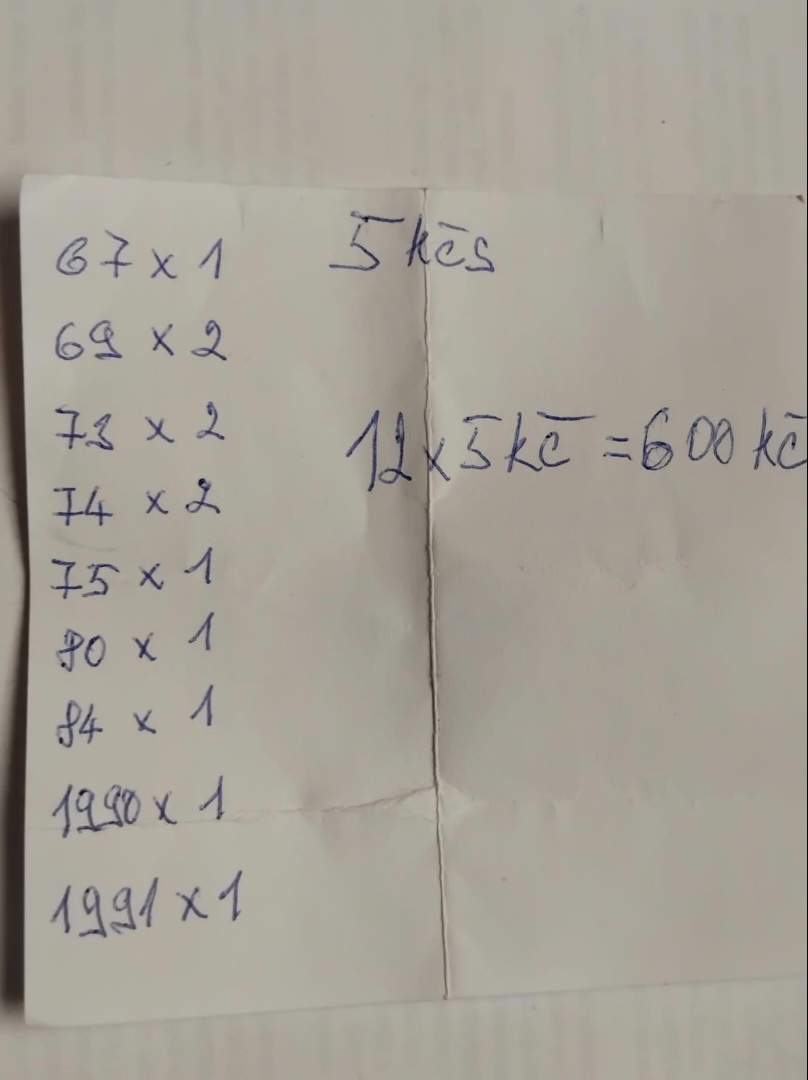 67 x 1
5 kčs
69 x 2
73 x 2
12 x 5 kč = 600 kč
74 x 2
75 x 1
80 x 1
84 x 1
1990 x 1
1991 x 1